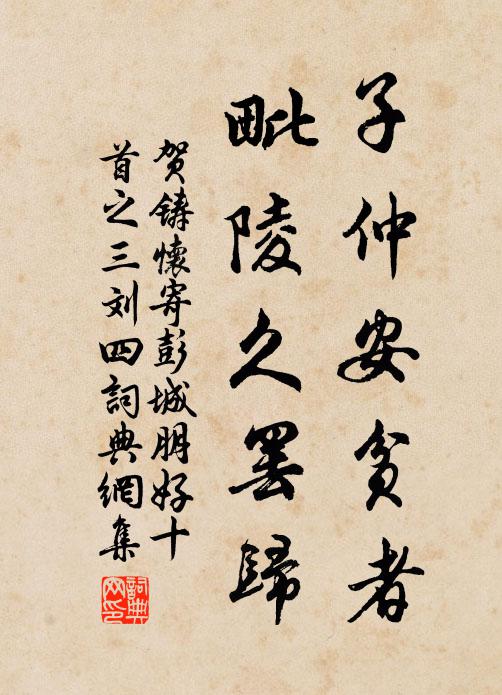 子仲安贫者
毗陵久罢歸
贺鑄懷寄彭城朋好十
首之三刘四詞典網集
詞典网印